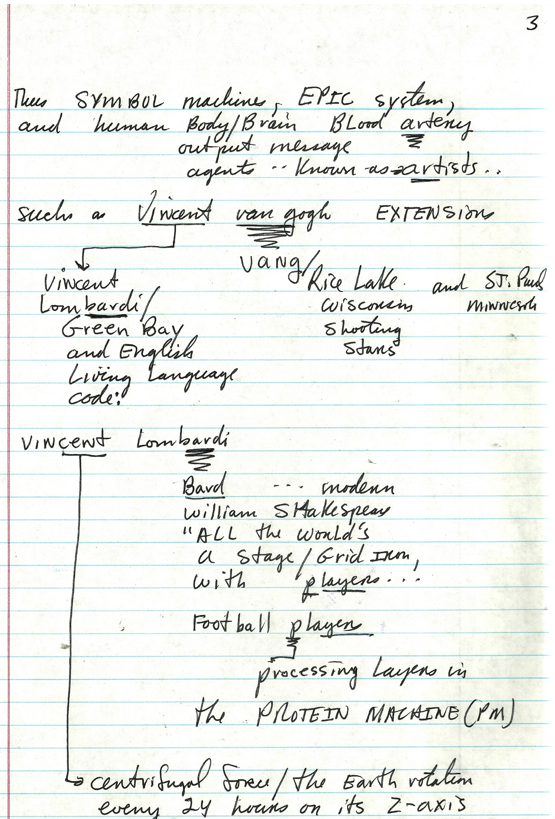 3
Thus SYMBOL machines, EPIC system,
and human Body/Brain Blood artery
output message
agents .. Known as artists ..
such as Vincent van gogh EXTENSION
vang/
Vincent
Lombardi/
Green Bay
and English
Living Language
code:
Rice Lake and ST. Paul
wisconsin minnesota
shooting
stars
VINCENT Lombardi
Bard ... modern
william SHAkespeare
"ALL the world's
a stage/Grid Iron,
with players ...
Football player
processing Layers in
the PROTEIN MACHINE (PM)
centrifugal force/the Earth rotation
every 24 hours on its Z-axis